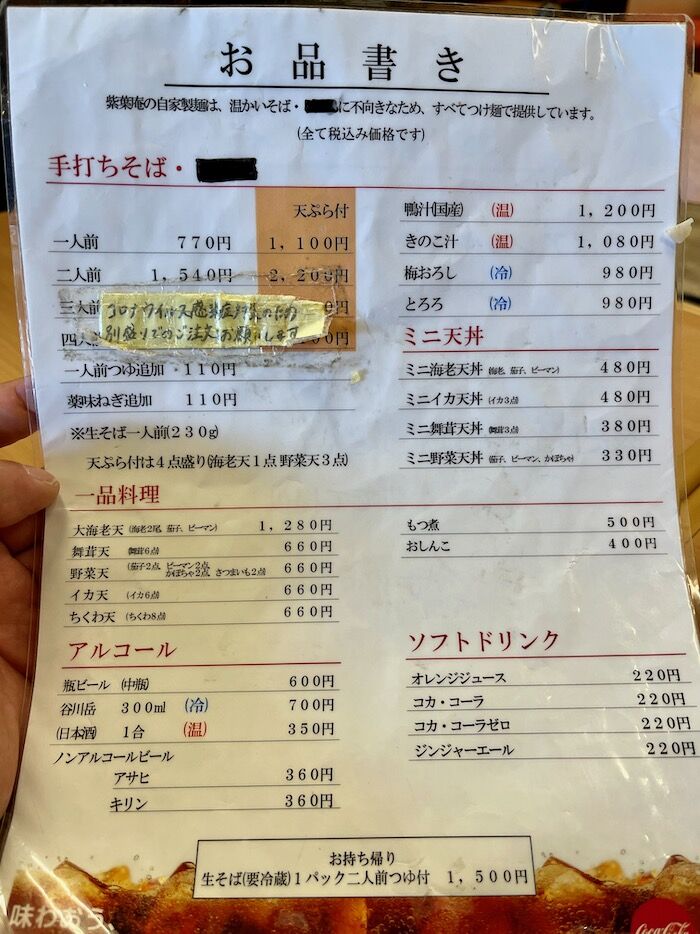 お品書き
紫葉庵の自家製麺は、温かいそば・に不向きなため、すべてつけ麺で提供しています。
(全て税込み価格です)
手打ちそば・
天ぷら付
一人前 770円 1,100円
二人前 1,540円 2,200円
三人前 0円
四人 00円
コロナウイルス感染症対策のため
別盛りでのご注文お願いします
一人前つゆ追加 110円
薬味ねぎ追加 110円
※生そば一人前(230g)
天ぷら付は4点盛り(海老天1点 野菜天3点)
鴨汁(国産) (温) 1,200円
きのこ汁 (温) 1,080円
梅おろし (冷) 980円
とろろ (冷) 980円
ミニ天丼
ミニ海老天丼 (海老、茄子、ピーマン) 480円
ミニイカ天丼 (イカ3点) 480円
ミニ舞茸天丼 (舞茸3点) 380円
ミニ野菜天丼 (茄子、ピーマン、かぼちゃ) 330円
一品料理
大海老天 (海老2尾、茄子、ピーマン) 1,280円
舞茸天 (舞茸6点) 660円
野菜天 (茄子2点、ピーマン2点、かぼちゃ2点、さつまいも2点) 660円
イカ天 (イカ6点) 660円
ちくわ天 (ちくわ8点) 660円
もつ煮 500円
おしんこ 400円
アルコール
瓶ビール (中瓶) 600円
谷川岳 300ml (冷) 700円
(日本酒) 1合 (温) 350円
ノンアルコールビール
アサヒ 360円
キリン 360円
ソフトドリンク
オレンジジュース 220円
コカ・コーラ 220円
コカ・コーラゼロ 220円
ジンジャーエール 220円
お持ち帰り
生そば(要冷蔵)1パック二人前つゆ付 1,500円
味わおう.
Coca-Cola